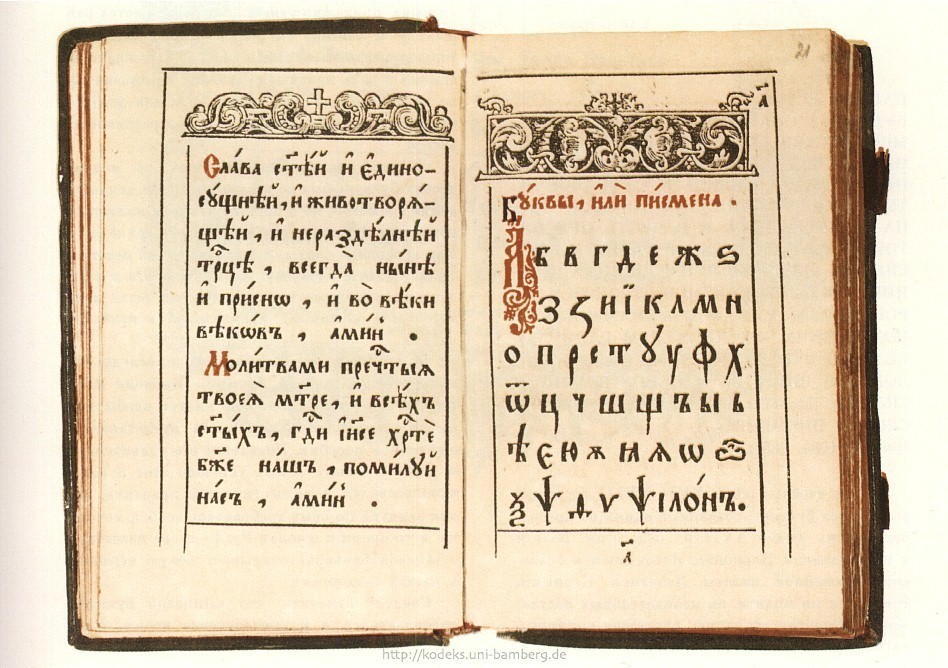 Сла́ва ст҃ѣ́й и҆ є҆дино-
сꙋ́щнѣй, и҆ животворѧ́-
щѣй, и҆ нераздѣ́лнѣй
трⷪ҇цѣ, всегда̀ ны́нѣ
и҆ при́снѡ, и҆ во̀ вѣ́ки
вѣкѡ́въ, а҆ми́нь.
Моли́твами пречⷭ҇тыѧ
твоеѧ̀ мт҃ре, и҆ всѣ́хъ
ст҃ы́хъ, гдⷭ҇и і҆и҃се хрⷭ҇тѐ
бж҃е на́шъ, поми́лꙋй
на́съ, а҆ми́нь.
21
а҃
Бꙋ́квы, и҆лѝ пи́смена.
А б в г д е ж ѕ
з ꙁ и ї к л м н
о п р с т ꙋ у ф х
ѿ ц ч ш щ ъ ы ь
ѣ є ю ѫ ꙗ ѧ ѡ
ѯ ѱ ѳ ѵ ѱіло́нъ.
а҃
http://kodeks.uni-bamberg.de